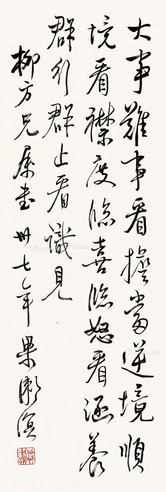 大事難事看擔當逆境順
境看襟度臨喜臨怒看涵養
群行群止看識見
柳方兄屬書 卅七年 果衡溟